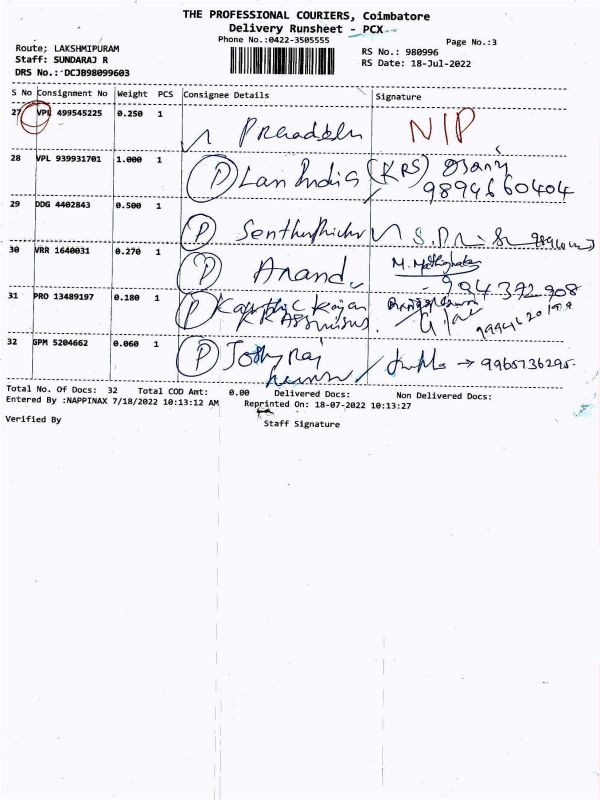 THE PROFESSIONAL COURIERS, Coimbatore
Delivery Runsheet - PCX
Phone No.:0422-3505555
Page No.:3
Route; LAKSHMIPURAM
RS No.: 980996
Staff: SUNDARAJ R
RS Date: 18-Jul-2022
DRS No.: DCJB98099603
S No Consignment No Weight PCS Consignee Details Signature
27 VPL 499545225 0.250 1 NIP
28 VPL 939931701 1.000 1 P Lan India (KRS)
9894660404
29 DDG 4402843 0.500 1 P
30 VRR 1640031 0.270 1 P Anand
31 PRO 13489197 0.180 1 P
32 GPM 5204662 0.060 1 P → 9965736295
Total No. Of Docs: 32 Total COD Amt: 0.00 Delivered Docs: Non Delivered Docs:
Entered By :NAPPINAX 7/18/2022 10:13:12 AM Reprinted On: 18-07-2022 10:13:27
Verified By Staff Signature